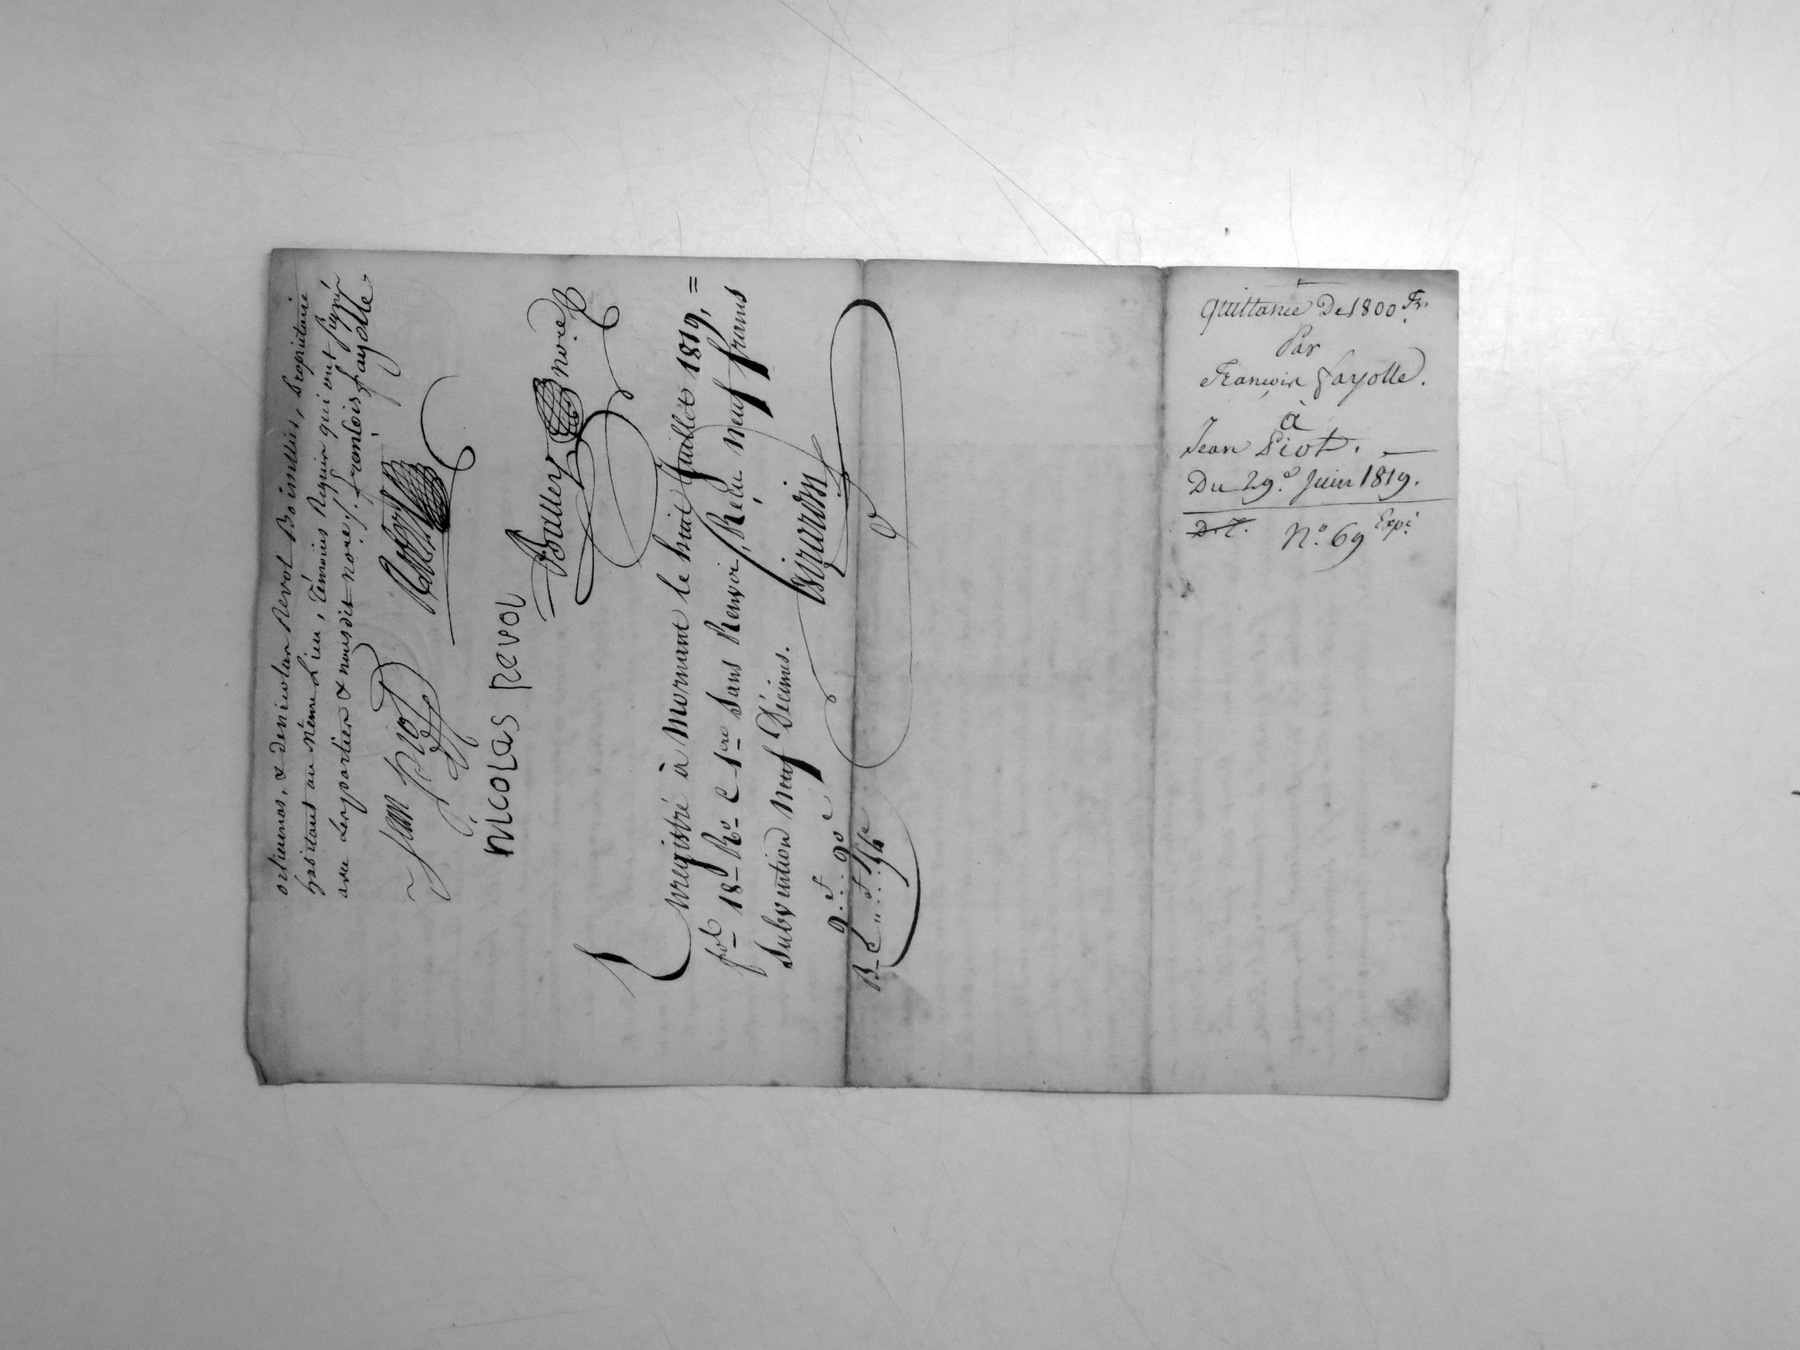 & de nicolas Revol Boisselier, Propriétaire
habitant au même Lieu, Témoins Requis qui ont signé
avec Les parties & nous dit nore. /. francois fayolle
Jean Piot
nicolas Revol
nore
Enregistré à Mornant le huit Juillet 1819, =
fol. 18 Ro C 1re sans Renvoi, Reçu neuf francs
Subvention neuf Décimes.
Girardin
9.f..90c
Quittance De 1800 Fr.
Par
François fayolle.
à
Jean Piot.
Du 29.e Juin 1819.
No. 69 Expé